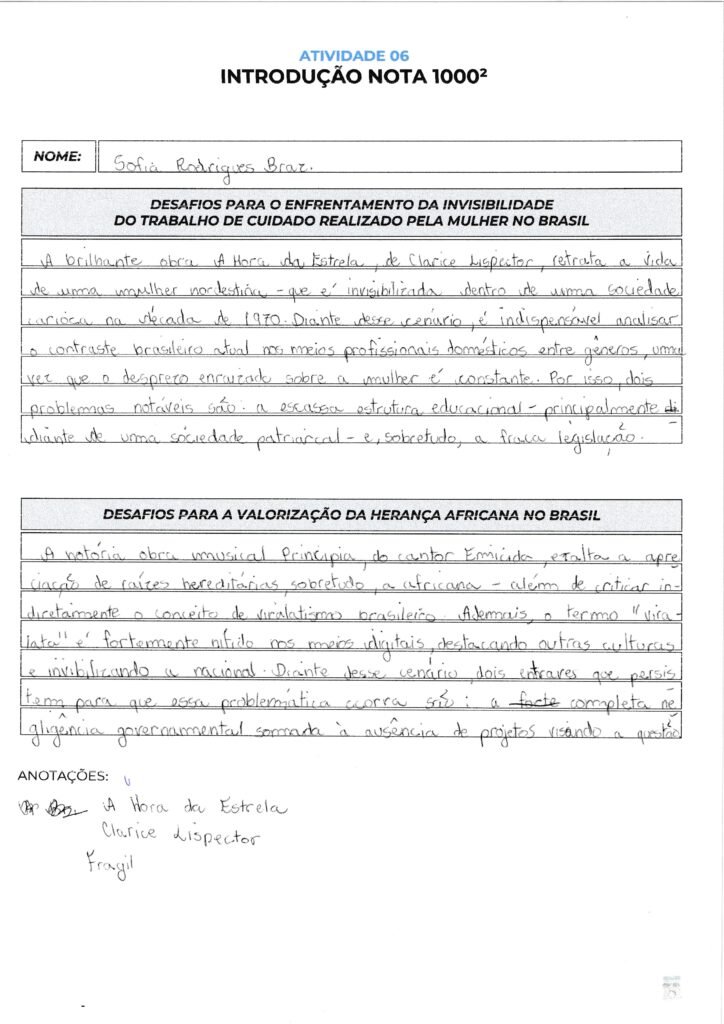 ATIVIDADE 06
INTRODUÇÃO NOTA 1000²
NOME: Sofia Rodrigues Braz.
DESAFIOS PARA O ENFRENTAMENTO DA INVISIBILIDADE
DO TRABALHO DE CUIDADO REALIZADO PELA MULHER NO BRASIL
A brilhante obra A Hora da Estrela, de Clarice Lispector, retrata a vida
de uma mulher nordestina - que é invisibilizada dentro de uma sociedade
carioca na década de 1970. Diante desse cenário, é indispensável analisar
o contraste brasileiro atual nos meios profissionais domésticos entre gêneros, uma
vez que o desprezo enraizado sobre a mulher é constante. Por isso, dois
problemas notáveis são: a escassa estrutura educacional - principalmente di
diante de uma sociedade patriarcal - e, sobretudo, a fraca legislação.
DESAFIOS PARA A VALORIZAÇÃO DA HERANÇA AFRICANA NO BRASIL
A notória obra musical Principia, do cantor Emicida, exalta a apre
ciação de raízes hereditárias, sobretudo, a africana - além de criticar in-
diretamente o conceito de viralatismo brasileiro. Ademais, o termo "vira-
lata" é fortemente nítido nos meios digitais, destacando outras culturas
e invibilizando a nacional. Diante desse cenário, dois entraves que persis
tem para que essa problemática ocorra são: a forte completa ne
gligência governamental somada à ausência de projetos visando a questão
ANOTAÇÕES:
A Hora da Estrela
Clarice Lispector
Fragil